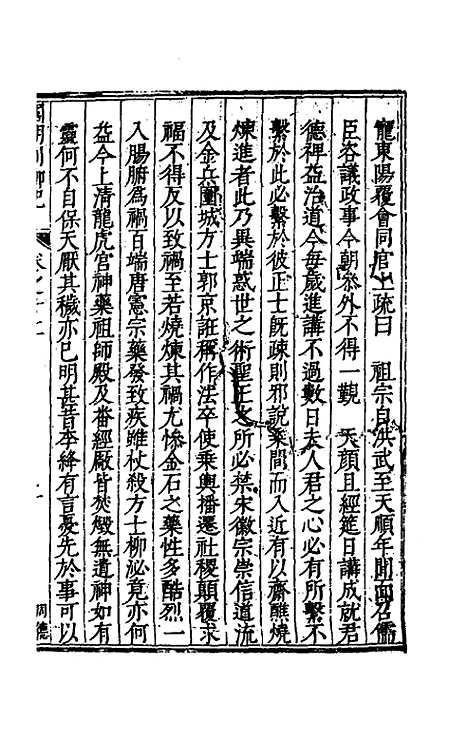 寵東陽覆會同官上疏曰　祖宗自洪武至天順年間面召儒
臣咨議政事今朝叅外不得一覿　天顔且經筵日講成就君
德禆益治道今每歲進講不過數日夫人君之心必有所繫不
繫於此必繫於彼正士旣疎則邪說乘間而入近有以齋醮燒
煉進者此乃異端惑世之術聖王之所必禁宋徽宗崇信道流
及金兵圍城方士郭京誑稱作法卒使乘輿播遷社稷顛覆求
福不得反以致禍至若燒煉其禍尤慘金石之藥性多酷烈一
入腸腑爲禍百端唐憲宗藥發致疾雖杖殺方士柳泌竟亦何
益今上清龍虎宮神藥祖師殿及番經厰皆焚燬無遺神如有
靈何不自保天厭其穢亦已明甚昔李絳有言憂先於事可以